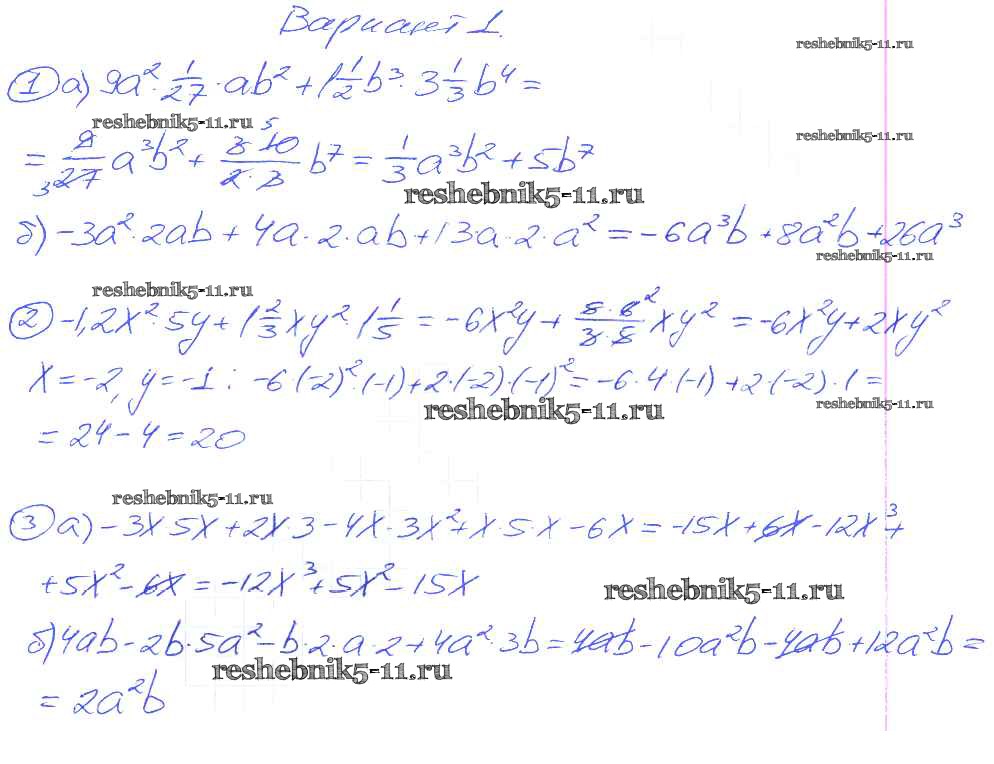 Вариант 1.
reshebnik5-11.ru
① а) 9a²·1/27·ab² + 1 1/2 b³·3 1/3 b⁴ =
reshebnik5-11.ru
reshebnik5-11.ru
= 9/27 a³b² + 3·10/2·3 b⁷ = 1/3 a³b² + 5b⁷
reshebnik5-11.ru
б) -3a²·2ab + 4a·2·ab + 13·a·2·a² = -6a³b + 8a²b + 26a³
reshebnik5-11.ru
reshebnik5-11.ru
② -1,2x²·5y + 1 2/3 xy²·1 1/5 = -6x²y + 5·6/3·5 xy² = -6x²y + 2xy²
x = -2, y = -1: -6·(-2)²·(-1) + 2·(-2)·(-1)² = -6·4·(-1) + 2·(-2)·1 =
reshebnik5-11.ru
reshebnik5-11.ru
= 24 - 4 = 20
reshebnik5-11.ru
③ а) -3x·5x + 2x·3 - 4x·3x² + x·5·x - 6x = -15x + 6x - 12x³ +
+ 5x² - 6x = -12x³ + 5x² - 15x
reshebnik5-11.ru
б) 4ab - 2b·5a² - b·2·a·2 + 4a²·3b = 4ab - 10a²b - 4ab + 12a²b =
reshebnik5-11.ru
= 2a²b